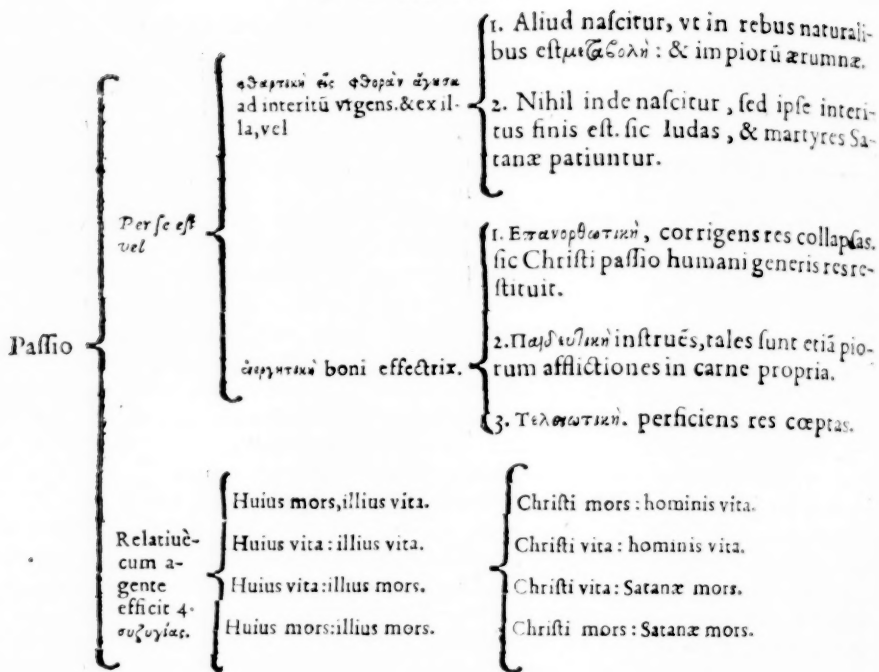 Paſſio
Per ſe eſt
vel
φθαρτικὴ εἰς φθορὰν ἄγουσα
ad interitū vrgens. & ex il-
la, vel
1. Aliud naſcitur, vt in rebus naturali-
bus eſt μεταβολὴ: & impiorū ærumnæ.
2. Nihil inde naſcitur, ſed ipſe interi-
tus finis eſt. ſic Iudas, & martyres Sa-
tanæ patiuntur.
ἐνεργητικὴ boni effectrix.
1. Επανορθωτικὴ, corrigens res collapſas.
ſic Chriſti paſſio humani generis res re-
ſtituit.
2. Παιδευτικὴ inſtruēs, tales ſunt etiā pio-
rum afflictiones in carne propria.
3. Τελειωτικὴ. perficiens res cœptas.
Relatiuè-
cum a-
gente
efficit 4.
συζυγίας.
Huius mors, illius vita.
Huius vita: illius vita.
Huius vita: illius mors.
Huius mors: illius mors.
Chriſti mors: hominis vita.
Chriſti vita: hominis vita.
Chriſti vita: Satanæ mors.
Chriſti mors: Satanæ mors.